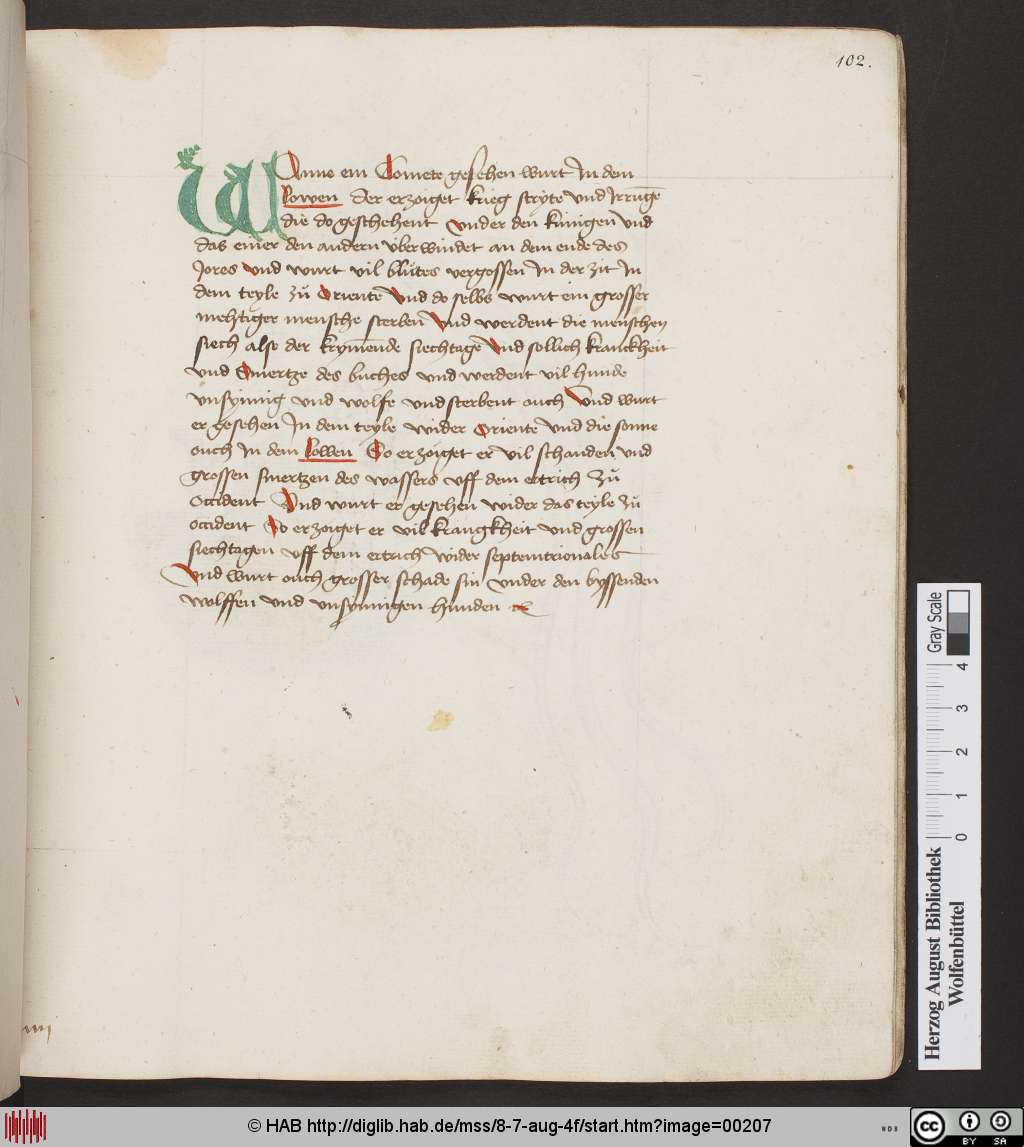 102.
WAnne ein Comete gesehen wurt In dem
lowen der erzoiget krieg stryte vnd Irrunge
die do geschehent vnder den kúnigen vnd
das einer den andern vberwindet an dem ende des
Jores vnd wurt vil blůtes vergossen In der zit In
dem teyle zů Oriente vnd do selbs wurt ein grosser
mehtiger mensche sterben vnd werdent die menschen
siech also der krymende siechtage vnd sollich kranckheit
vnd Smertze des buches vnd werdent vil hunde
vnsynnig vnd wolfe vnd sterbent ouch Vnd wurt
er gesehen In dem teyle wider Oriente vnd die sonne
ouch In dem lowen So erzoiget er vil schanden vnd
grossen smertzen des wassers vff dem ertrich Zů
Occident Vnd wurt er gesehen wider das teyle zů
occident So erzoiget er vil krangkheit vnd grossen
siechtagen vff dem ertrich wider septemtrionales
Vnd wurt ouch grosser schade sin vnder den byssenden
wolffen vnd vnsynnigen hunden
Herzog August Bibliothek
Wolfenbüttel
0 1 2 3 4
Gray Scale
© HAB http://diglib.hab.de/mss/8-7-aug-4f/start.htm?image=00207
WDB
cc BY SA